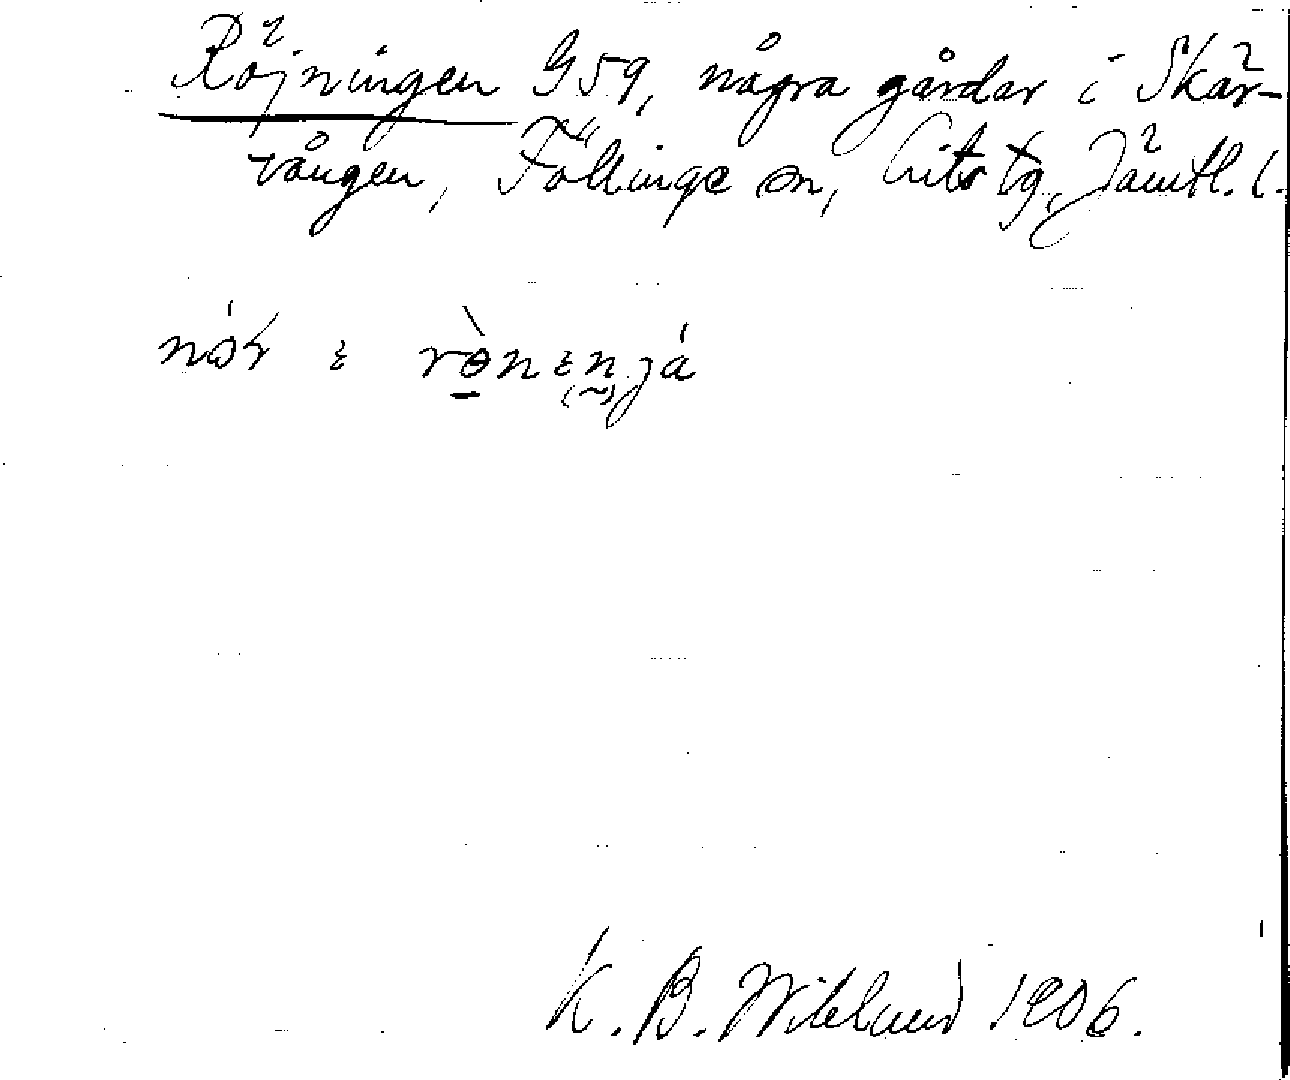 Röjningen G59, några gårdar i Skär-
vången, Föllinge sn, Lits tg, Jämtl. l.
nǿr ɛ rɵ̀nɛnjá
K. B. Wiklund 1906.